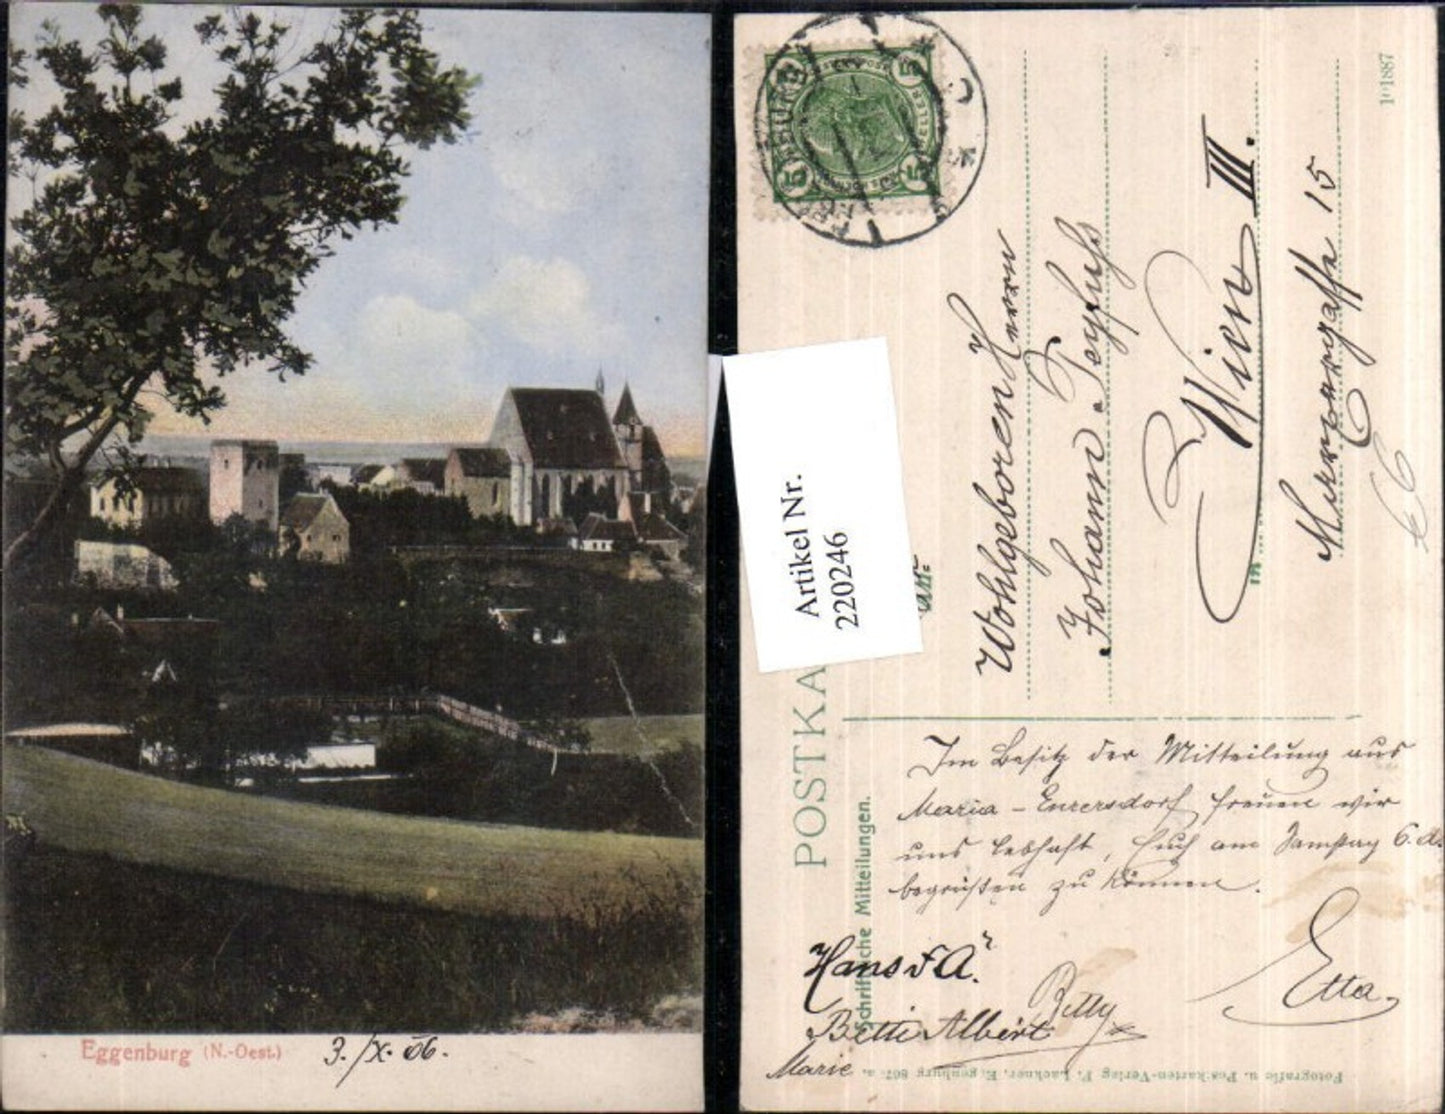 Eggenburg (N.-Oest.)
3./X. 06.
5
5
5
5
101887
Artikel Nr.
220246
POSTKA
An:
Wohlgeboren Herrn
Johann Teyfuss
Wien III.
in
Marxergasse 15
€6
Schriftliche Mitteilungen.
Im Besitz der Mitteilung aus
Maria-Enzersdorf freuen wir
uns lebhaft, Euch am Samstag 6. d.
begrüßen zu können.
Etta
Hans
Betty
Betti Albert
Marie
Fotografie u. Postkarten-Verlag F. Lackner, Eggenburg 867. a.